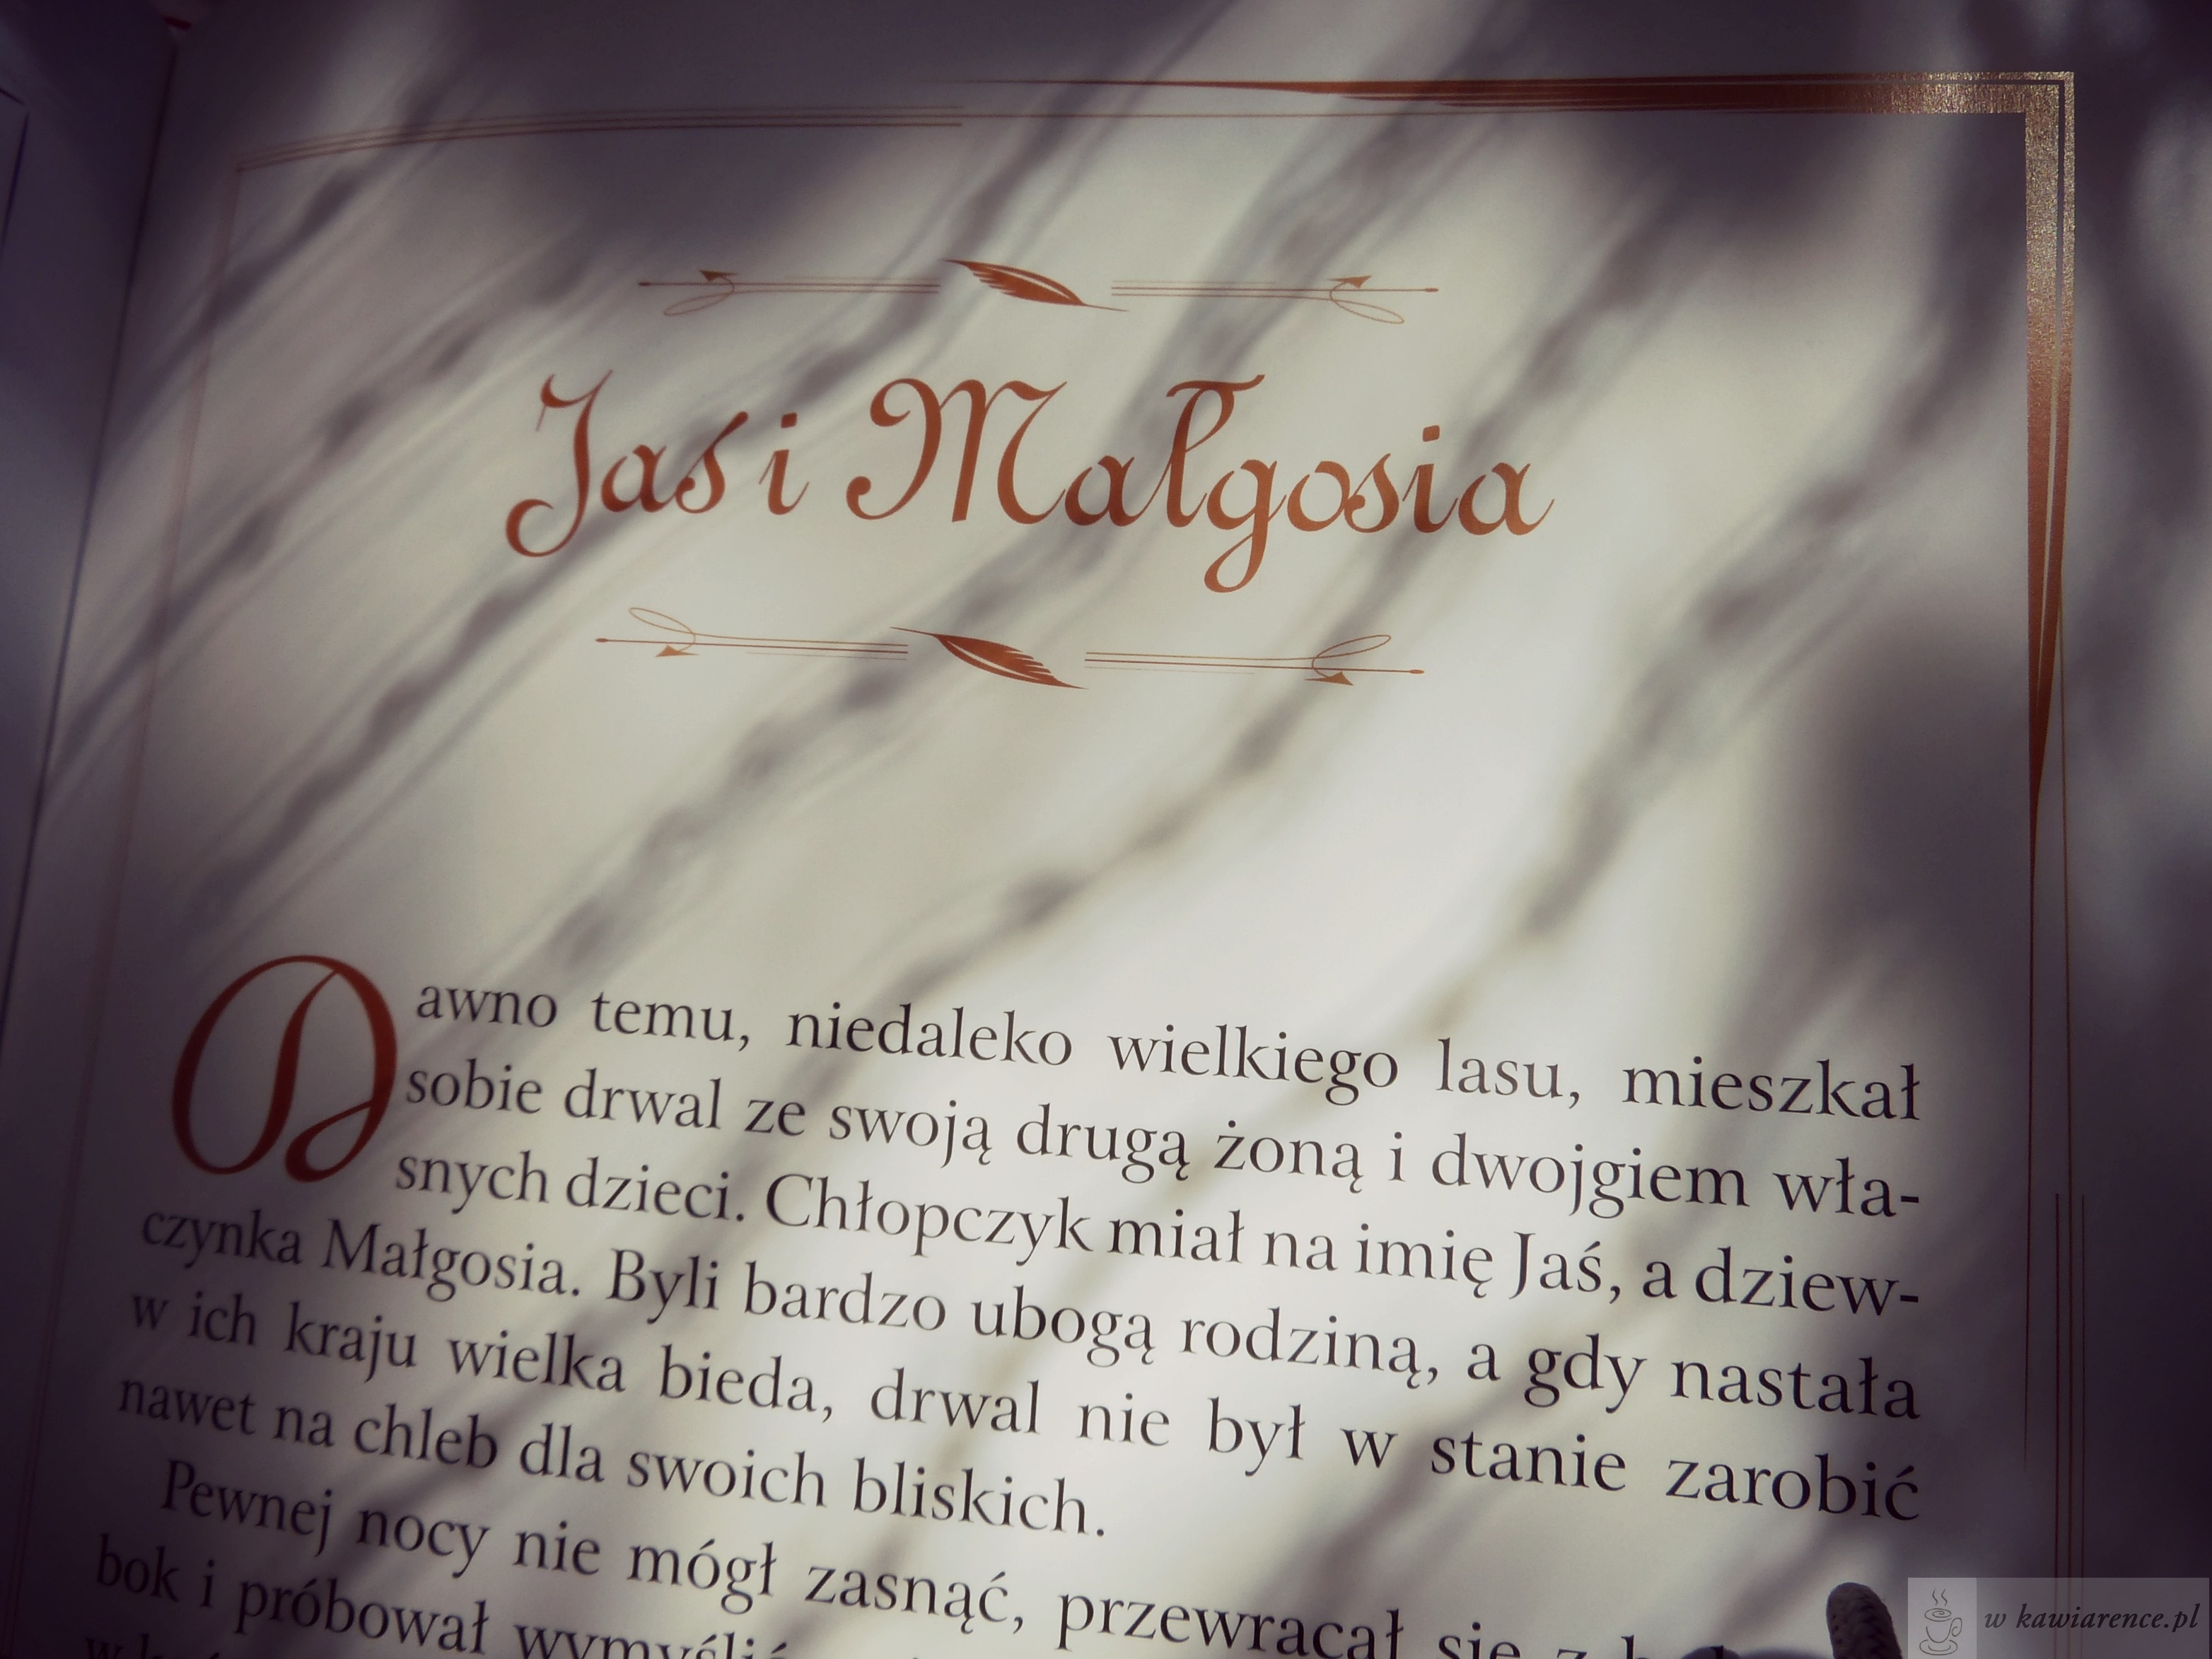 Jaś i Małgosia
Dawno temu, niedaleko wielkiego lasu, mieszkał
sobie drwal ze swoją drugą żoną i dwojgiem wła-
snych dzieci. Chłopczyk miał na imię Jaś, a dziew-
czynka Małgosia. Byli bardzo ubogą rodziną, a gdy nastała
w ich kraju wielka bieda, drwal nie był w stanie zarobić
nawet na chleb dla swoich bliskich.
Pewnej nocy nie mógł zasnąć, przewracał się z
bok i próbował wymyślić
w kawiarence.pl